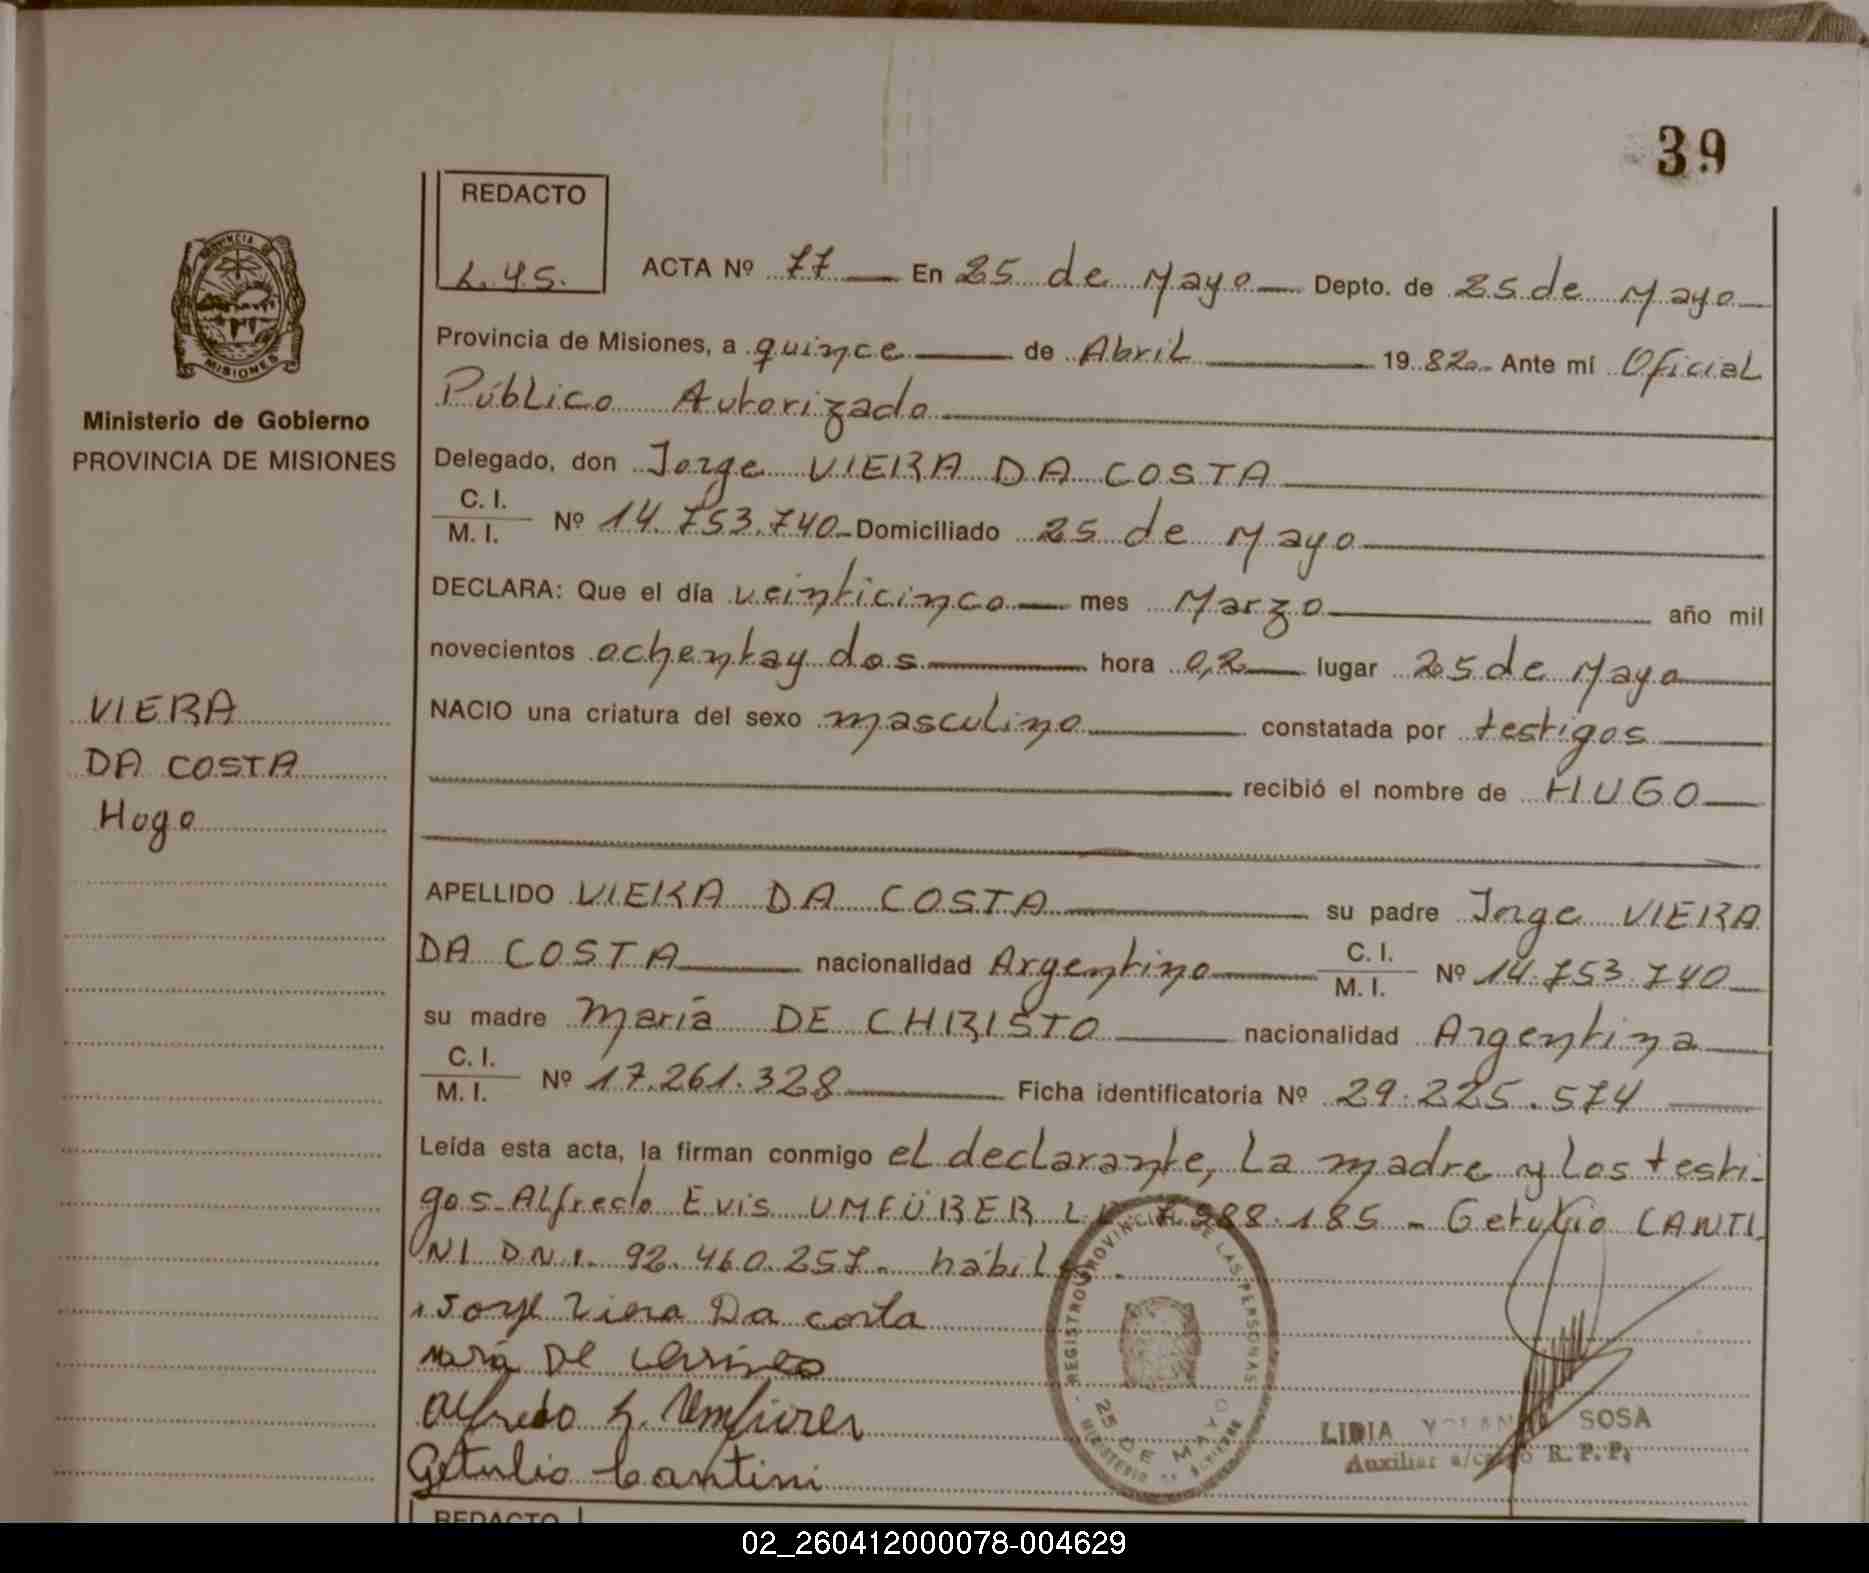 39
REDACTO
L.Y.S.
ACTA Nº 77 En 25 de Mayo Depto. de 25 de Mayo
Provincia de Misiones, a quince de Abril 19 82. Ante mí Oficial
Público Autorizado
Delegado, don Jorge VIERA DA COSTA
C. I.
M. I. Nº 14.753.740 Domiciliado 25 de Mayo
DECLARA: Que el día veinticinco mes Marzo año mil
novecientos ochentay dos hora 0,2 lugar 25 de Mayo
NACIO una criatura del sexo masculino constatada por testigos
recibió el nombre de HUGO
APELLIDO VIERA DA COSTA su padre Jorge VIERA
DA COSTA nacionalidad Argentino C. I. M. I. Nº 14.753.740
su madre María DE CHRISTO nacionalidad Argentina
C. I.
M. I. Nº 17.261.328 Ficha identificatoria Nº 29.225.574
Leída esta acta, la firman conmigo el declarante, la madre y los testi-
gos Alfredo Evis UMFÜRER 988.185 - Getulio CANTI
NI D.N.I. 92.460.257.
Jorge Viera Da costa
María De
Alfredo
Getulio Cantini
PROVINCIA DE
MISIONES
Ministerio de Gobierno
PROVINCIA DE MISIONES
VIERA
DA COSTA
Hugo
REGISTRO PROVINCIAL DE LAS PERSONAS
25 DE MAYO
MINISTERIO DE GOBIERNO
LIDIA SOSA
Auxiliar R. P. P.
REDACTO
02_260412000078-004629